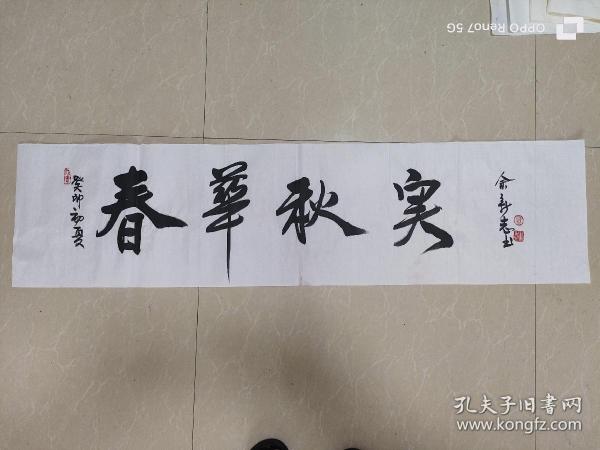 OPPO Reno7 5G
癸卯初夏
春華秋实
余新志书
孔夫子旧书网
www.kongfz.com